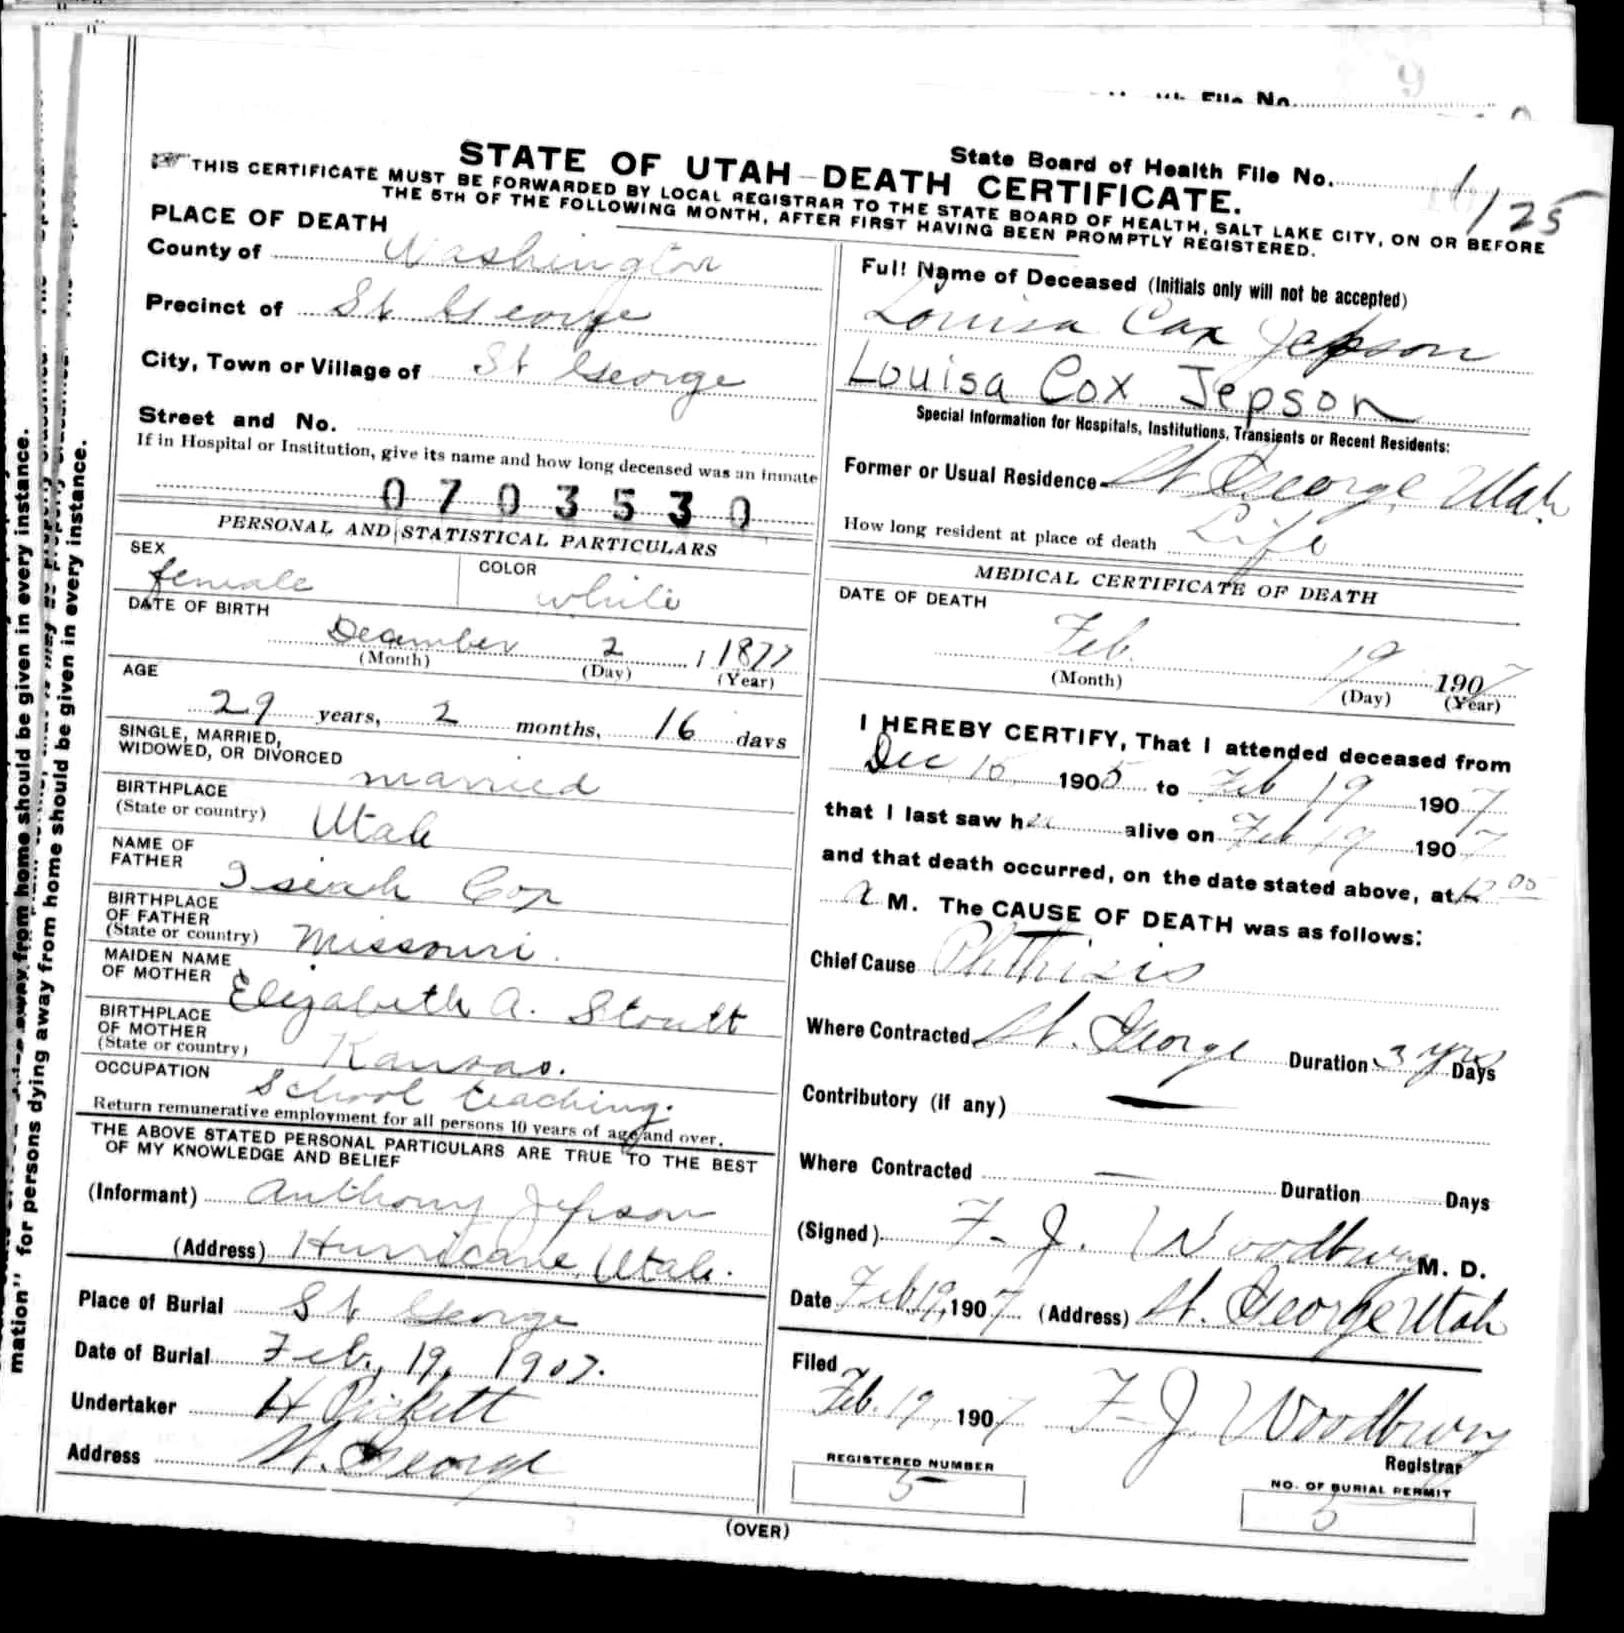 File No.
9
State Board of Health File No. 1125
STATE OF UTAH—DEATH CERTIFICATE.
THIS CERTIFICATE MUST BE FORWARDED BY LOCAL REGISTRAR TO THE STATE BOARD OF HEALTH, SALT LAKE CITY, ON OR BEFORE
THE 5TH OF THE FOLLOWING MONTH, AFTER FIRST HAVING BEEN PROMPTLY REGISTERED.
PLACE OF DEATH
County of Washington
Precinct of St George
City, Town or Village of St George
Street and No.
If in Hospital or Institution, give its name and how long deceased was an inmate
0703530
PERSONAL AND STATISTICAL PARTICULARS
SEX
female
COLOR
white
DATE OF BIRTH
December 2 1 1877
(Month) (Day) (Year)
AGE
29 years, 2 months, 16 days
SINGLE, MARRIED,
WIDOWED, OR DIVORCED married
BIRTHPLACE
(State or country) Utah
NAME OF
FATHER Isiah Cox
BIRTHPLACE
OF FATHER
(State or country) Missouri.
MAIDEN NAME
OF MOTHER Elizabeth A. Stoutt
BIRTHPLACE
OF MOTHER
(State or country) Kansas.
OCCUPATION School teaching.
Return remunerative employment for all persons 10 years of age and over.
THE ABOVE STATED PERSONAL PARTICULARS ARE TRUE TO THE BEST
OF MY KNOWLEDGE AND BELIEF
(Informant) Anthony Jepson
(Address) Hurricane, Utah.
Place of Burial St George
Date of Burial Feb., 19, 1907.
Undertaker H Pickett
Address St. George
Full Name of Deceased (Initials only will not be accepted)
Louisa Cox Jepson
Louisa Cox Jepson
Special Information for Hospitals, Institutions, Transients or Recent Residents:
Former or Usual Residence St George, Utah.
How long resident at place of death Life
MEDICAL CERTIFICATE OF DEATH
DATE OF DEATH
Feb. 19 1907
(Month) (Day) (Year)
I HEREBY CERTIFY, That I attended deceased from
Dec 1905 to Feb 19 1907
that I last saw her alive on Feb 19 1907
and that death occurred, on the date stated above, at 12 00
a M. The CAUSE OF DEATH was as follows:
Chief Cause Phthisis
Where Contracted St. George Duration 3 yrs Days
Contributory (if any) —
Where Contracted — Duration Days
(Signed) F. J. Woodbury M. D.
Date Feb 19, 1907 (Address) St. George Utah
Filed
Feb. 19, 1907 F. J. Woodbury
Registrar
REGISTERED NUMBER
5
NO. OF BURIAL PERMIT
5
(OVER)
mation" for persons dying away from home should be given in every instance.